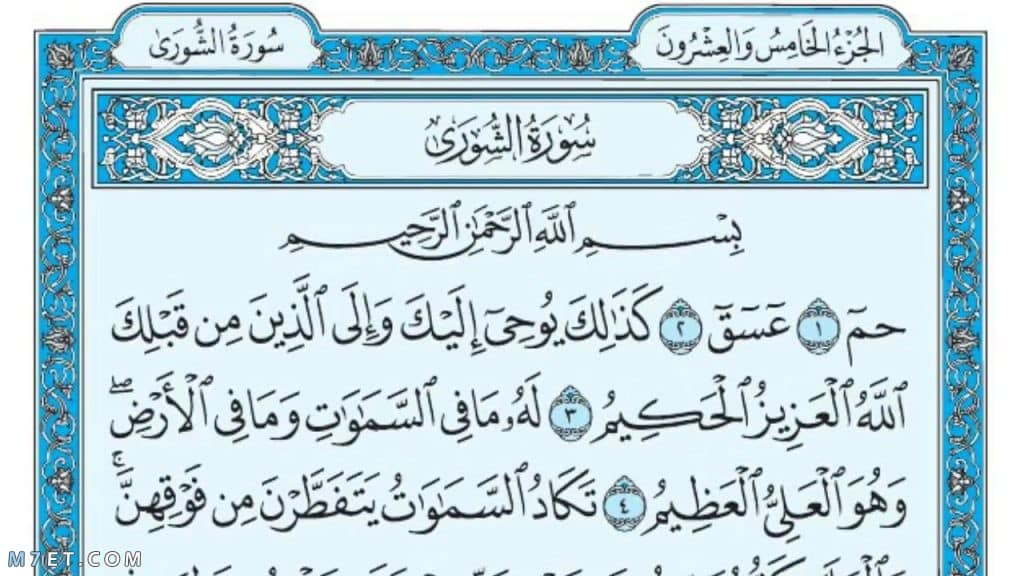 الجُزْءُ الخَامِسُ وَالعِشْرُونَ
سُورَةُ الشُّورَىٰ
سُورَةُ الشُّورَىٰ
بِسْمِ ٱللَّهِ ٱلرَّحْمَٰنِ ٱلرَّحِيمِ
حمٓ ١ عٓسٓقٓ ٢ كَذَٰلِكَ يُوحِىٓ إِلَيْكَ وَإِلَى ٱلَّذِينَ مِن قَبْلِكَ
ٱللَّهُ ٱلْعَزِيزُ ٱلْحَكِيمُ ٣ لَهُۥ مَا فِى ٱلسَّمَٰوَٰتِ وَمَا فِى ٱلْأَرْضِۖ
وَهُوَ ٱلْعَلِىُّ ٱلْعَظِيمُ ٤ تَكَادُ ٱلسَّمَٰوَٰتُ يَتَفَطَّرْنَ مِن فَوْقِهِنَّۚ
M7ET.COM